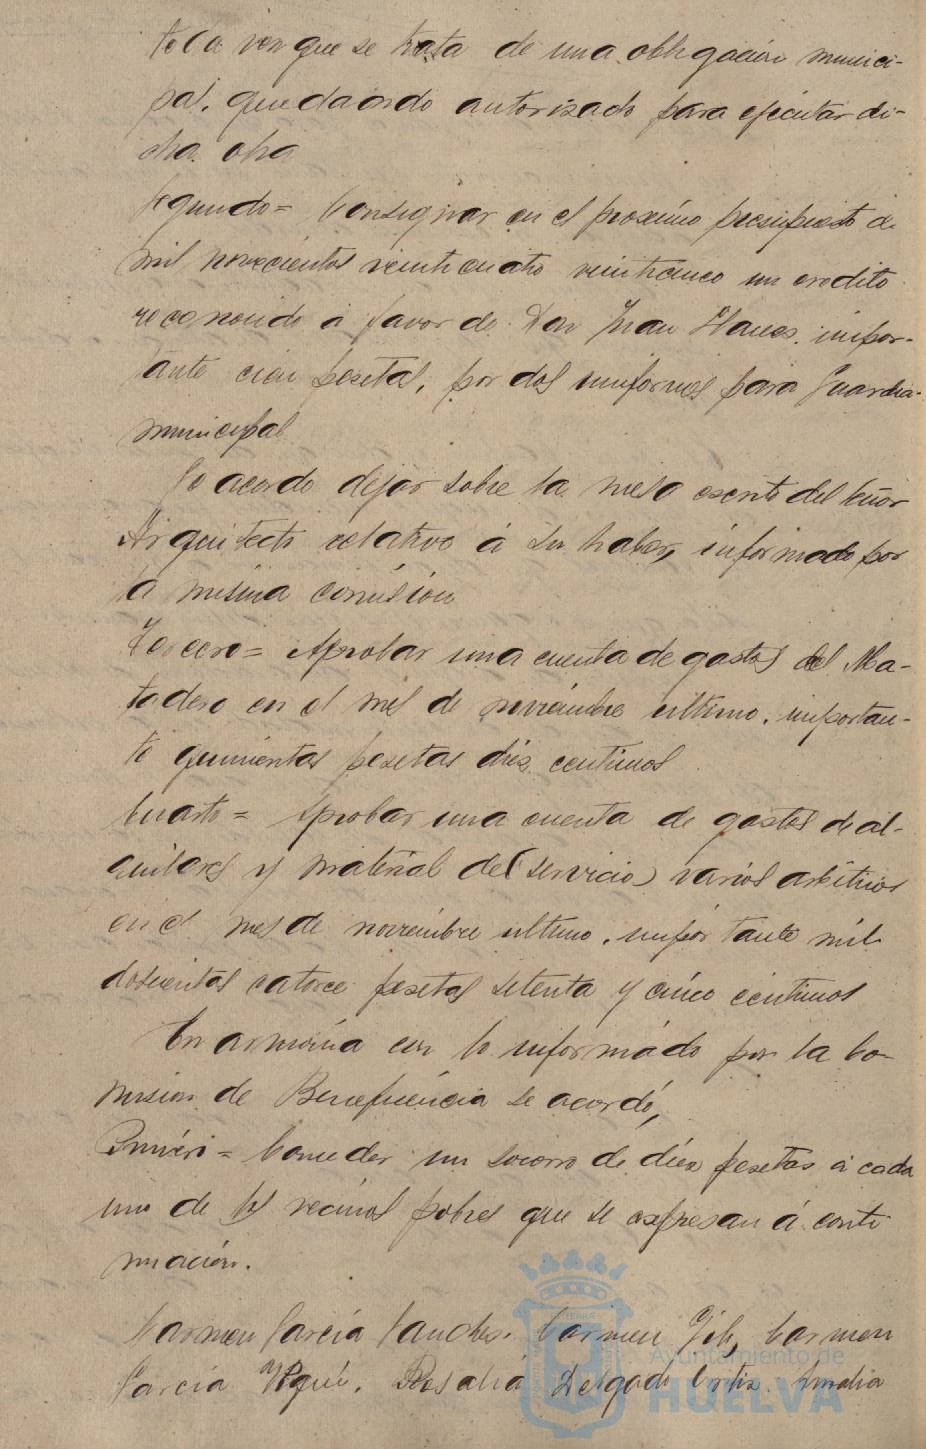 toda vez que se trata de una obligación munici-
pal, quedando autorizado para ejecutar di-
cha obra
Segundo= Consignar en el proximo presupuesto de
mil novecientos veinticuatro veinticinco un credito
reconocido á favor de Don Juan Llanes, impor-
tante cien pesetas, por dos uniformes para Guardia
municipal
Se acordo dejar sobre la mesa escrito del Señor
Arquitecto relativo á su haber, informado por
la misma comision
Tercero= Aprobar una cuenta de gastos del Ma-
tadero en el mes de noviembre ultimo, importan-
te quinientas pesetas diez centimos
Cuarto= Aprobar una cuenta de gastos de al-
quileres y material del servicio varios arbitrios
en el mes de noviembre ultimo, importante mil
doscientas catorce pesetas setenta y cinco centimos
En armonia con lo informado por la Co-
mision de Beneficencia se acordó,
Primero= Conceder un socorro de diez pesetas á cada
uno de los vecinos pobres que se expresan á conti
nuación.
Carmen Garcia Sanchez, Carmen Gil, Carmen
Garcia, Rosalia Delgado Ortiz. Amalia
Ayuntamiento de
HUELVA